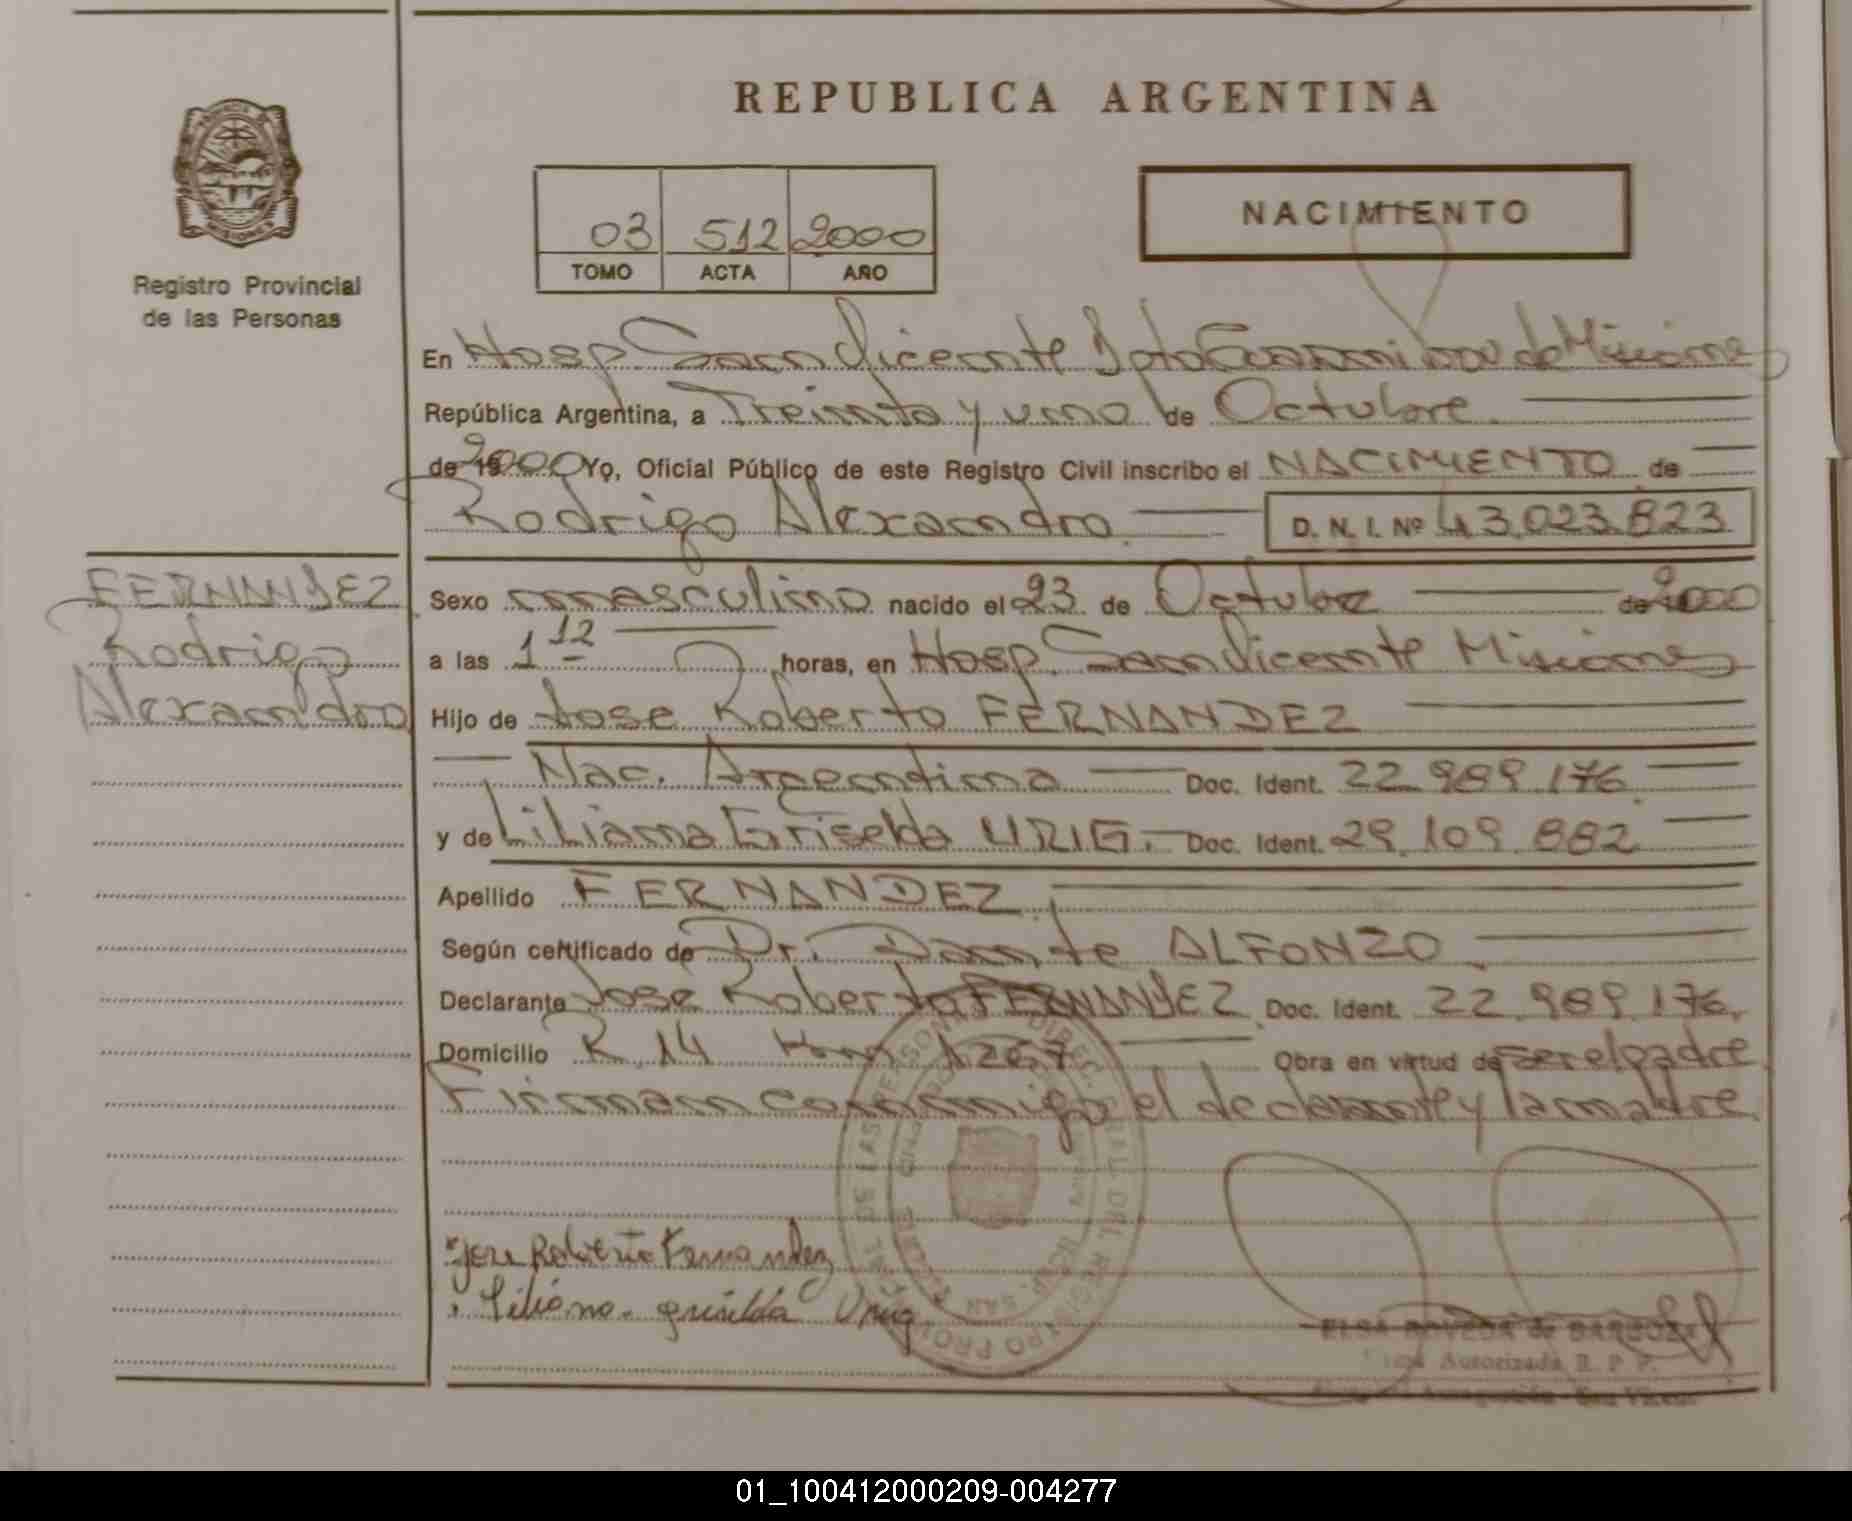 REPUBLICA ARGENTINA
MISIONES
Registro Provincial
de las Personas
03 512 2000
TOMO ACTA AÑO
NACIMIENTO
En Hosp San Vicente Dpto Guarani de Misiones
República Argentina, a Treinta y uno de Octubre
de 2000 Yo, Oficial Público de este Registro Civil inscribo el NACIMIENTO de
Rodrigo Alexandro D. N. I. Nº 43.023.823
FERNANDEZ
Rodrigo
Alexandro
Sexo masculino nacido el 23 de Octubre de 2000
a las 1 12 horas, en Hosp. San Vicente Misiones
Hijo de Jose Roberto FERNANDEZ
Nac. Argentina Doc. Ident. 22.989.176
y de Liliana Griselda URIG. Doc. Ident. 29.109.882
Apellido FERNANDEZ
Según certificado de Dr. Dante ALFONZO
Declarante Jose Roberto FERNANDEZ Doc. Ident. 22.989.176
Domicilio R.14 Km 1267 Obra en virtud de ser el padre
Firman conmigo el declarante y la madre
Jose Roberto Fernandez
Liliana Griselda Urig
ELSA POVEDA de BARBOZA
Autorizada R. P. P.
01_100412000209-004277